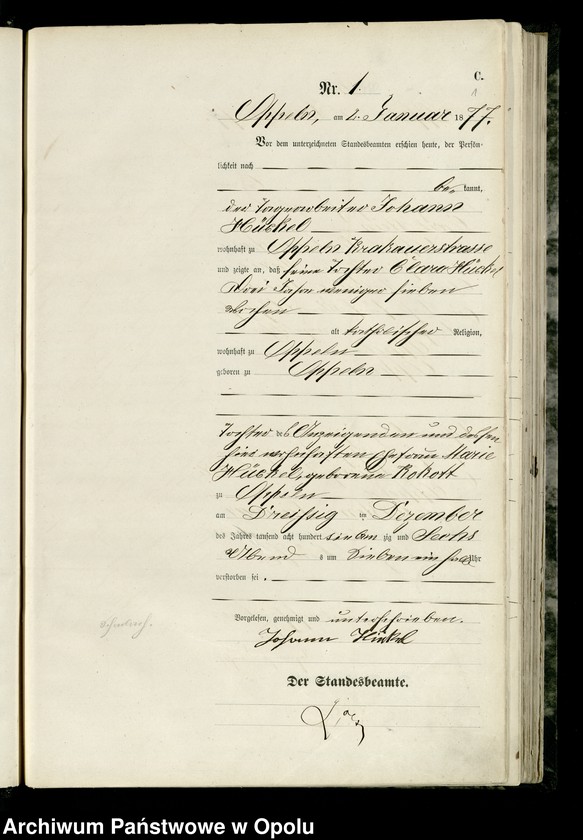 C.
1
Nr. 1.
Oppeln, am 2. Januar 1877.
Vor dem unterzeichneten Standesbeamten erschien heute, der Persön-
lichkeit nach
be- kannt,
der Tagearbeiter Johann
Hückel
wohnhaft zu Oppeln Krakauerstrasse
und zeigte an, daß seine Tochter Clara Hückel
drei Jahr weniger sieben
Wochen
alt katholischer Religion,
wohnhaft zu Oppeln
geboren zu Oppeln
Tochter des Anzeigenden und dessen
hier wohnhaften Ehefrau Marie
Hückel, geborene Kokott
zu Oppeln
am Dreißig ten Dezember
des Jahres tausend acht hundert sieben zig und Sechs
Abend s um Sieben ein halb Uhr
verstorben sei.
Vorgelesen, genehmigt und unterschrieben.
Johann Hückel
Der Standesbeamte.
Archiwum Państwowe w Opolu